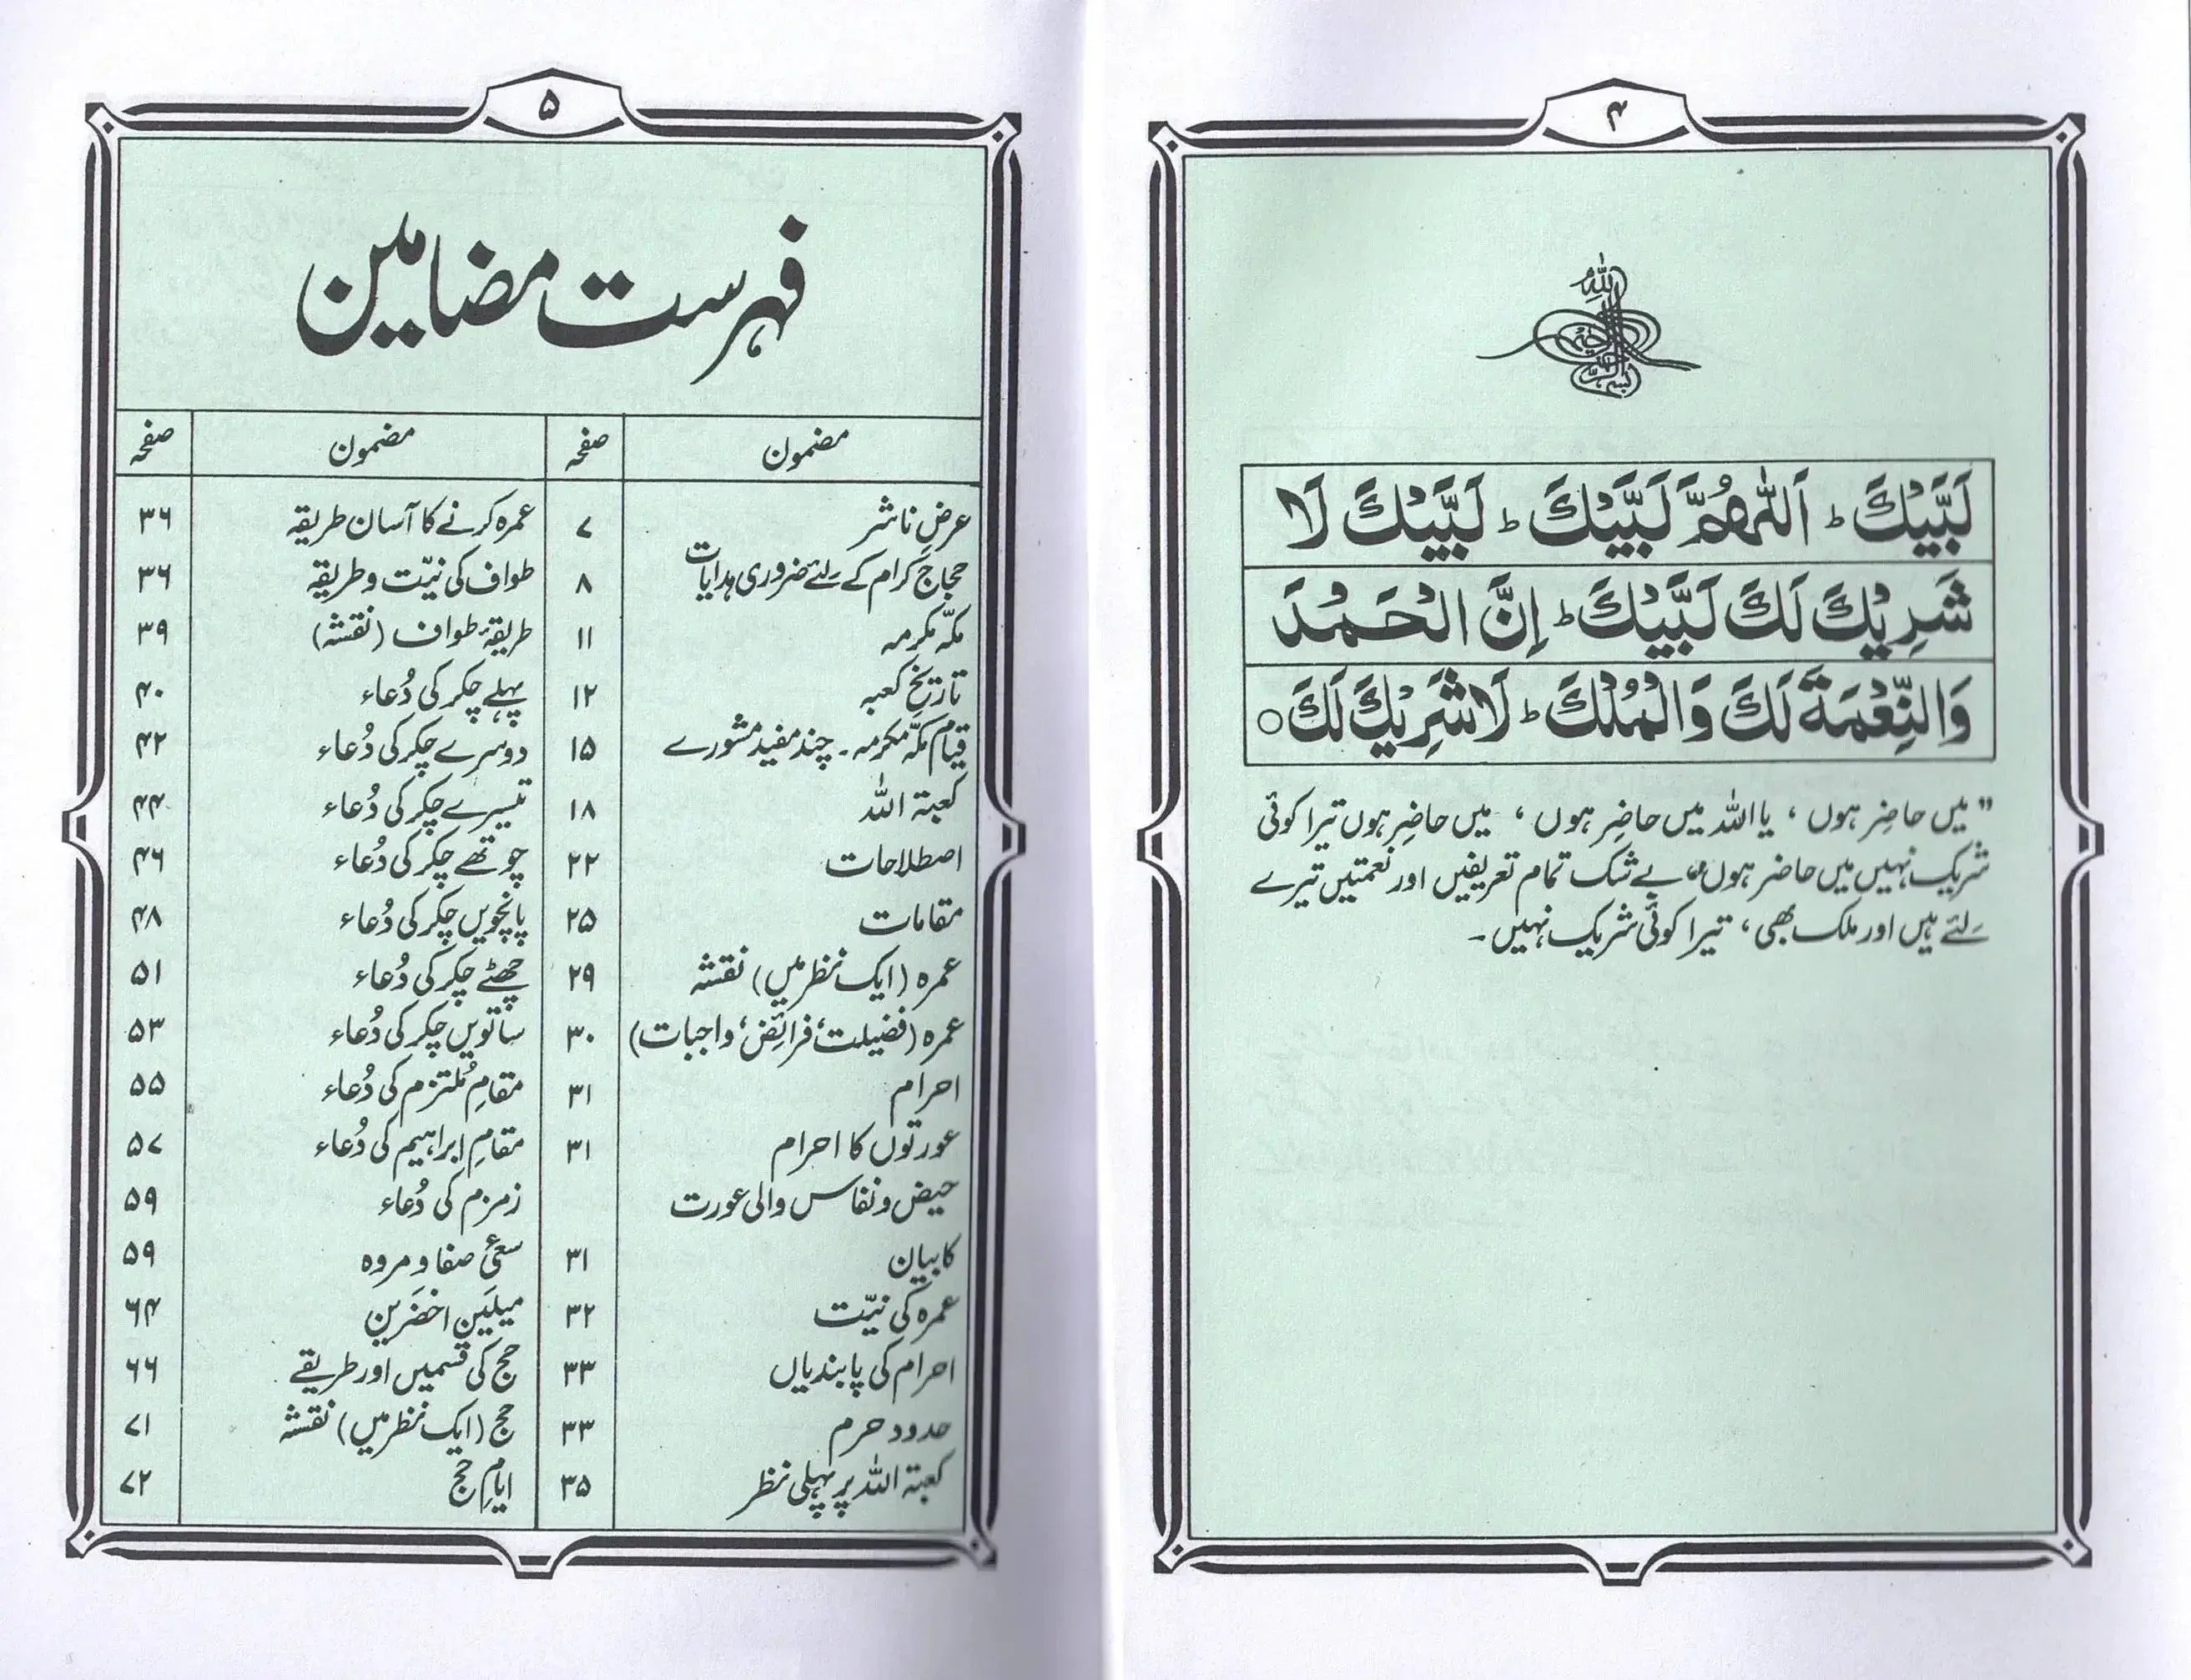 ۴
بسم اللہ الرحمن الرحیم
لَبَّيْكَ ؕ اَللّٰهُمَّ لَبَّيْكَ ؕ لَبَّيْكَ لَا
شَرِيْكَ لَكَ لَبَّيْكَ ؕ اِنَّ الْحَمْدَ
وَالنِّعْمَةَ لَكَ وَالْمُلْكَ ؕ لَا شَرِيْكَ لَكَ ○
" میں حاضِر ہوں ، یا اللہ میں حاضِر ہوں ، میں حاضِر ہوں تیرا کوئی
شریک نہیں میں حاضر ہوں، بے شک تمام تعریفیں اور نعمتیں تیرے
لِئے ہیں اور ملک بھی ، تیرا کوئی شریک نہیں ۔
۵
فہرست مضامین
مضمون صفحہ
عرضِ ناشر ۷
حجاجِ کرام کے لِئے ضروری ہدایات ۸
مکّہ مکرمہ ۱۱
تاریخِ کعبہ ۱۲
قیامِ مکّہ مکرمہ ۔ چند مفید مشورے ۱۵
کعبۃ اللہ ۱۸
اصطلاحات ۲۲
مقامات ۲۵
عمرہ (ایک نظر میں) نقشہ ۲۹
عمرہ (فضیلت، فرائض، واجبات) ۳۰
احرام ۳۱
عورتوں کا احرام ۳۱
حیض و نفاس والی عورت
کا بیان ۳۱
عمرہ کی نیّت ۳۲
احرام کی پابندیاں ۳۳
حدودِ حرم ۳۳
کعبۃ اللہ پر پہلی نظر ۳۵
مضمون صفحہ
عمرہ کرنے کا آسان طریقہ ۳۶
طواف کی نیّت و طریقہ ۳۶
طریقۂ طواف (نقشہ) ۳۹
پہلے چکر کی دُعاء ۴۰
دوسرے چکر کی دُعاء ۴۲
تیسرے چکر کی دُعاء ۴۴
چوتھے چکر کی دُعاء ۴۶
پانچویں چکر کی دُعاء ۴۸
چھٹے چکر کی دُعاء ۵۱
ساتویں چکر کی دُعاء ۵۳
مقامِ مُلتزم کی دُعاء ۵۵
مقامِ ابراہیم کی دُعاء ۵۷
زمزم کی دُعاء ۵۹
سعیٔ صفا و مروہ ۵۹
میلَین اخضَرین ۶۴
حج کی قسمیں اور طریقے ۶۶
حج (ایک نظر میں) نقشہ ۷۱
ایامِ حج ۷۲